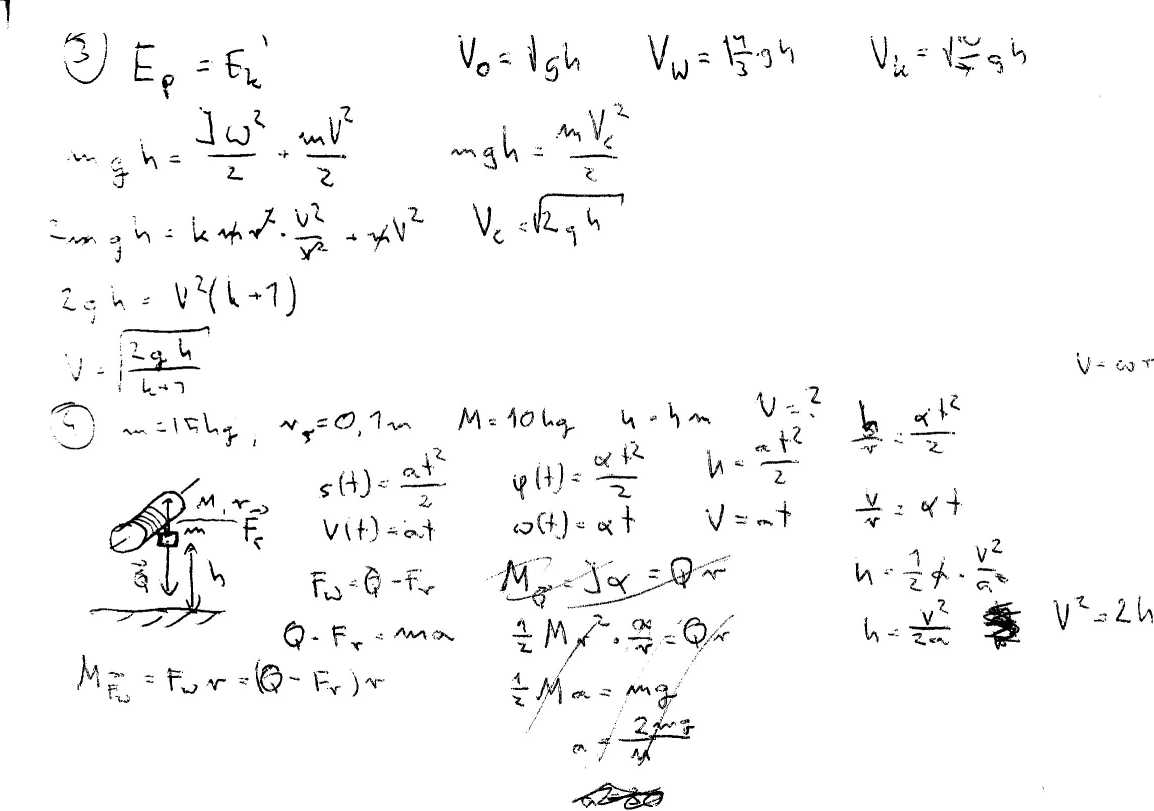 ③ E_p = E_k' V_o = √gh V_w = √(4/3 · gh) V_k = √(10/7 gh)
mgh = Jω²/2 + mV²/2 mgh = mV_c²/2
2mgh = kmr² · V²/r² + mV² V_c = √(2gh)
2gh = V²(k+1)
V = √(2gh/(k+1))
V = ωr
④ m = 15kg, r = 0,1m M = 10kg h = 4m V = ? h/r = αt²/2
s(t) = at²/2 φ(t) = αt²/2 h = at²/2
M, r
F_r
m
V(t) = at ω(t) = αt V = at V/r = αt
Q h
F_w = Q - F_r M_Q = Jα = Qr h = 1/2 a · V²/a²
Q - F_r = ma 1/2 Mr² · a/r = Qr h = V²/2a V² = 2h
M_F_w = F_w r = (Q - F_r)r 1/2 Ma = mg
a = 2mg/M